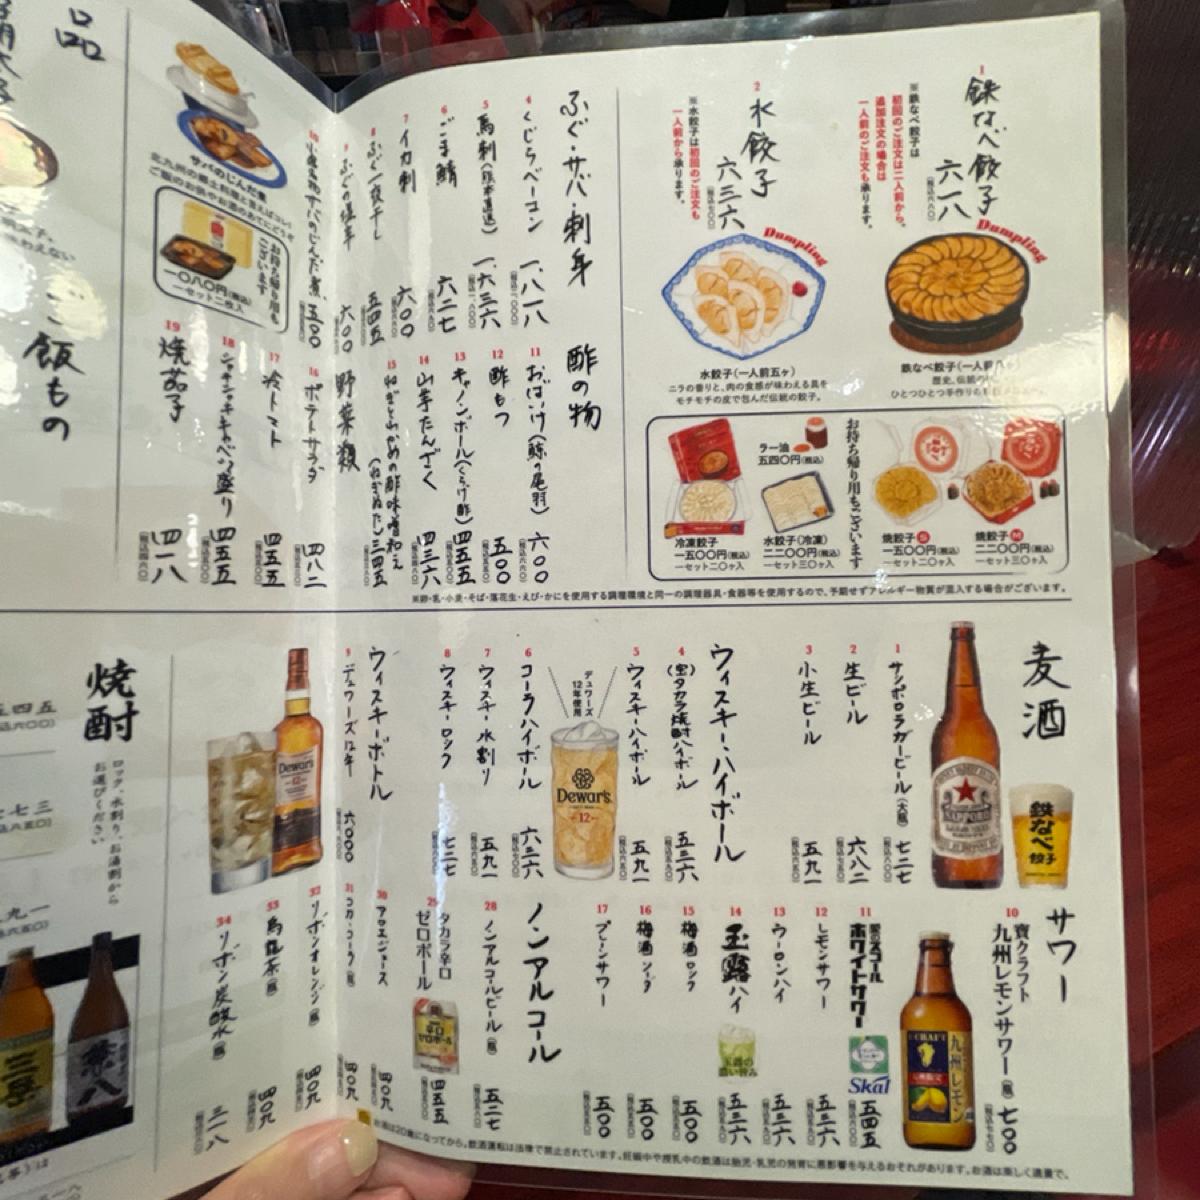 1
鉄なべ餃子
六一八
(税込六八〇)
※鉄なべ餃子は
初回のご注文は二人前から、
追加注文の場合は
一人前のご注文も承ります。
2
水餃子
六三六
(税込七〇〇)
※水餃子は初回のご注文も
一人前から承ります。
Dumpling
Dumpling
鉄なべ餃子(一人前八ヶ)
歴史、伝統の
ひとつひとつ手作りの
水餃子(一人前五ヶ)
ニラの香りと、肉の食感が味わえる具を
モチモチの皮で包んだ伝統の餃子。
お持ち帰り用もございます
焼餃子 M
二二〇〇円(税込)
一セット三〇ヶ入
焼餃子 S
一五〇〇円(税込)
一セット二〇ヶ入
ラー油
五四〇円(税込)
水餃子(冷凍)
二二〇〇円(税込)
一セット三〇ヶ入
冷凍餃子
一五〇〇円(税込)
一セット二〇ヶ入
ふぐ・サバ・刺身
4 くじらベーコン 一、八一八
5 馬刺(熊本直送) 一、六三六
6 ごま鯖 六二七
7 イカ刺 六〇〇
8 ふぐ一夜干し 五四五
9 ふぐの塩辛 六〇〇
10 小倉名物サバのじんだ煮 五〇〇
サバのじんだ煮
北九州の郷土料理と言えばコレ!
ご飯のお供やお酒のあてにどうぞ
お持ち帰り用も
ございます
一〇八〇円(税込)
一セット二枚入
酢の物
11 おばいけ(鯨の尾羽) 六〇〇
12 酢もつ 五〇〇
13 キャノンボール(くらげ酢) 四五五
14 山芋たんざく 四三六
15 ねぎとわかめの酢味噌和え(ねぎぬた) 三四五
野菜類
16 ポテトサラダ 四八二
17 冷トマト 四五五
18 シャキシャキキャベツ盛り 四五五
19 焼茄子 四一八
品
ご飯もの
※卵・乳・小麦・そば・落花生・えび・かにを使用する調理環境と同一の調理器具・食器等を使用するので、予期せずアレルギー物質が混入する場合がございます。
麦酒
1 サッポロラガービール(大瓶) 七二七
2 生ビール 六八二
3 小生ビール 五九一
SAPPORO
鉄なべ餃子
ウィスキー・ハイボール
4 (宝)タカラ焼酎ハイボール 五三六
5 ウィスキーハイボール 五九一
デュワーズ
12年使用
Dewar's
12
6 コーラハイボール 六三六
7 ウィスキー水割り 五九一
8 ウィスキーロック 七二七
ウィスキーボトル
9 デュワーズ12年 六〇〇〇
Dewar's
12
サワー
10 寶クラフト
九州レモンサワー(瓶) 七〇〇
CRAFT
九州レモン
11 愛のスコール
ホワイトサワー 五四五
Skål
12 レモンサワー 五三六
13 ウーロンハイ 五三六
14 玉露ハイ 五三六
15 梅酒ロック 五〇〇
16 梅酒ソーダ 五〇〇
17 プレーンサワー 五〇〇
ノンアルコール
28 ノンアルコールビール(瓶) 五二七
29 タカラ辛口
ゼロボール 四五五
辛口
ゼロボール
30 アロエジュース 四〇九
31 コカ・コーラ(瓶) 四〇九
32 リボンオレンジ(瓶) 四〇九
33 烏龍茶(瓶) 四〇九
34 リボン炭酸水(瓶) 三一八
焼酎
ロック、水割り、お湯割から
お選びください
お酒は20歳になってから。飲酒運転は法律で禁止されています。妊娠中や授乳中の飲酒は胎児・乳児の発育に悪影響を与えるおそれがあります。お酒は楽しく適量で。